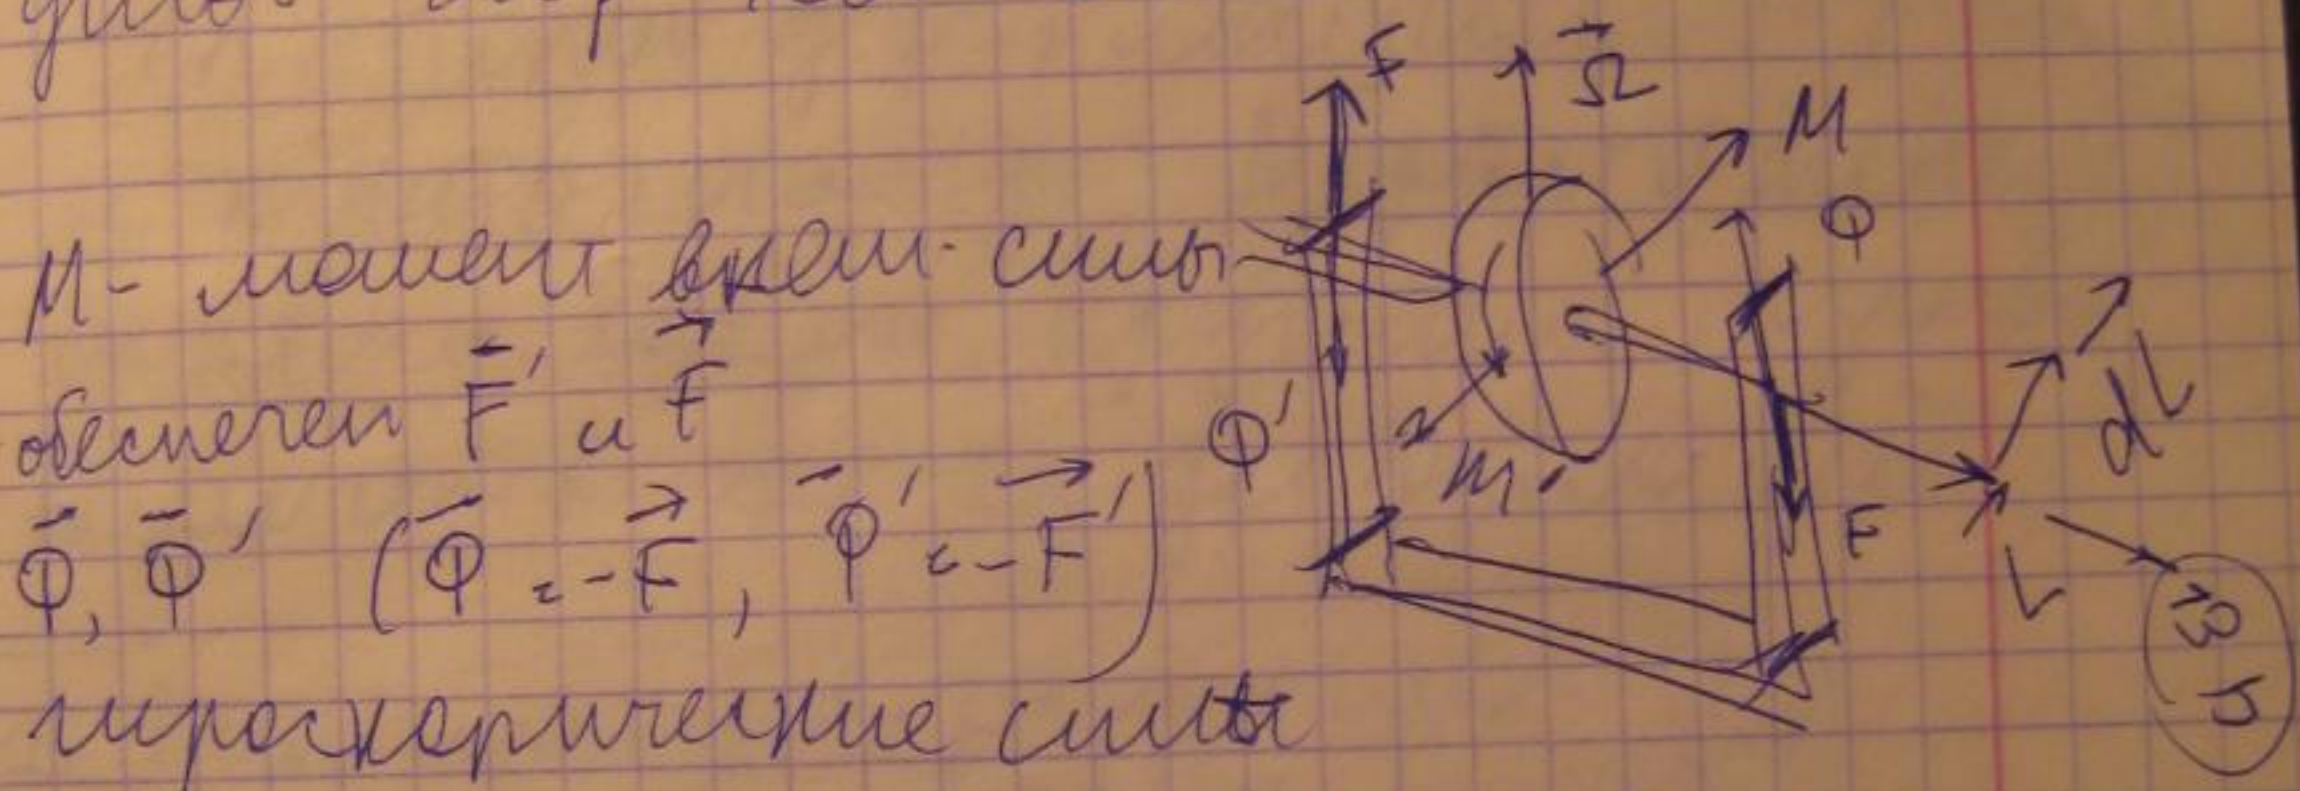 M - момент внеш. силы
обеспечен F⃗' и F⃗
Φ⃗, Φ⃗' (Φ⃗ = -F⃗, Φ⃗' = -F⃗')
гироскопические силы
F
Ω⃗
M
Φ
Φ'
M'
F
dL
L